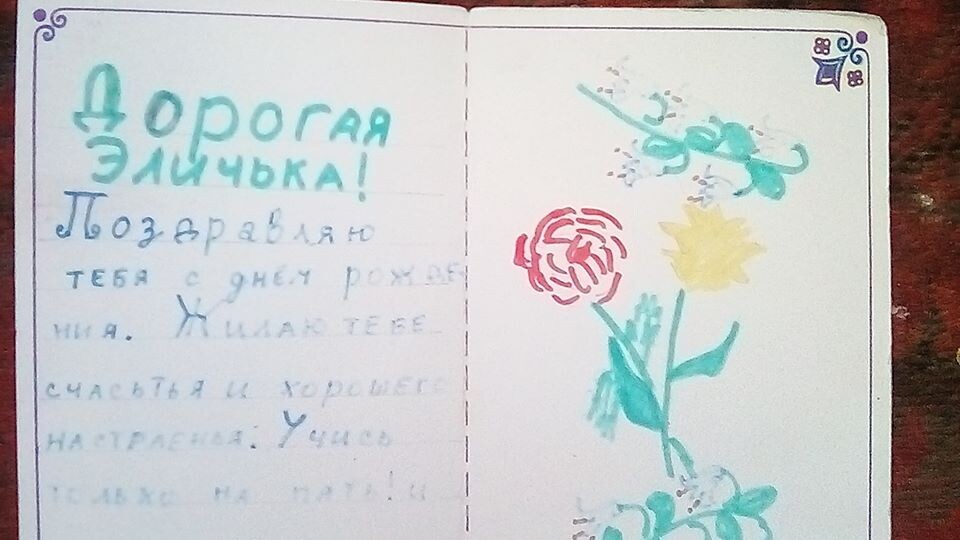 Дорогая
Эличька!
Поздравляю
тебя с днём рожде-
ния. Жилаю тебе
счасьтья и хорошего
настраенья. Учись
только на пать! и